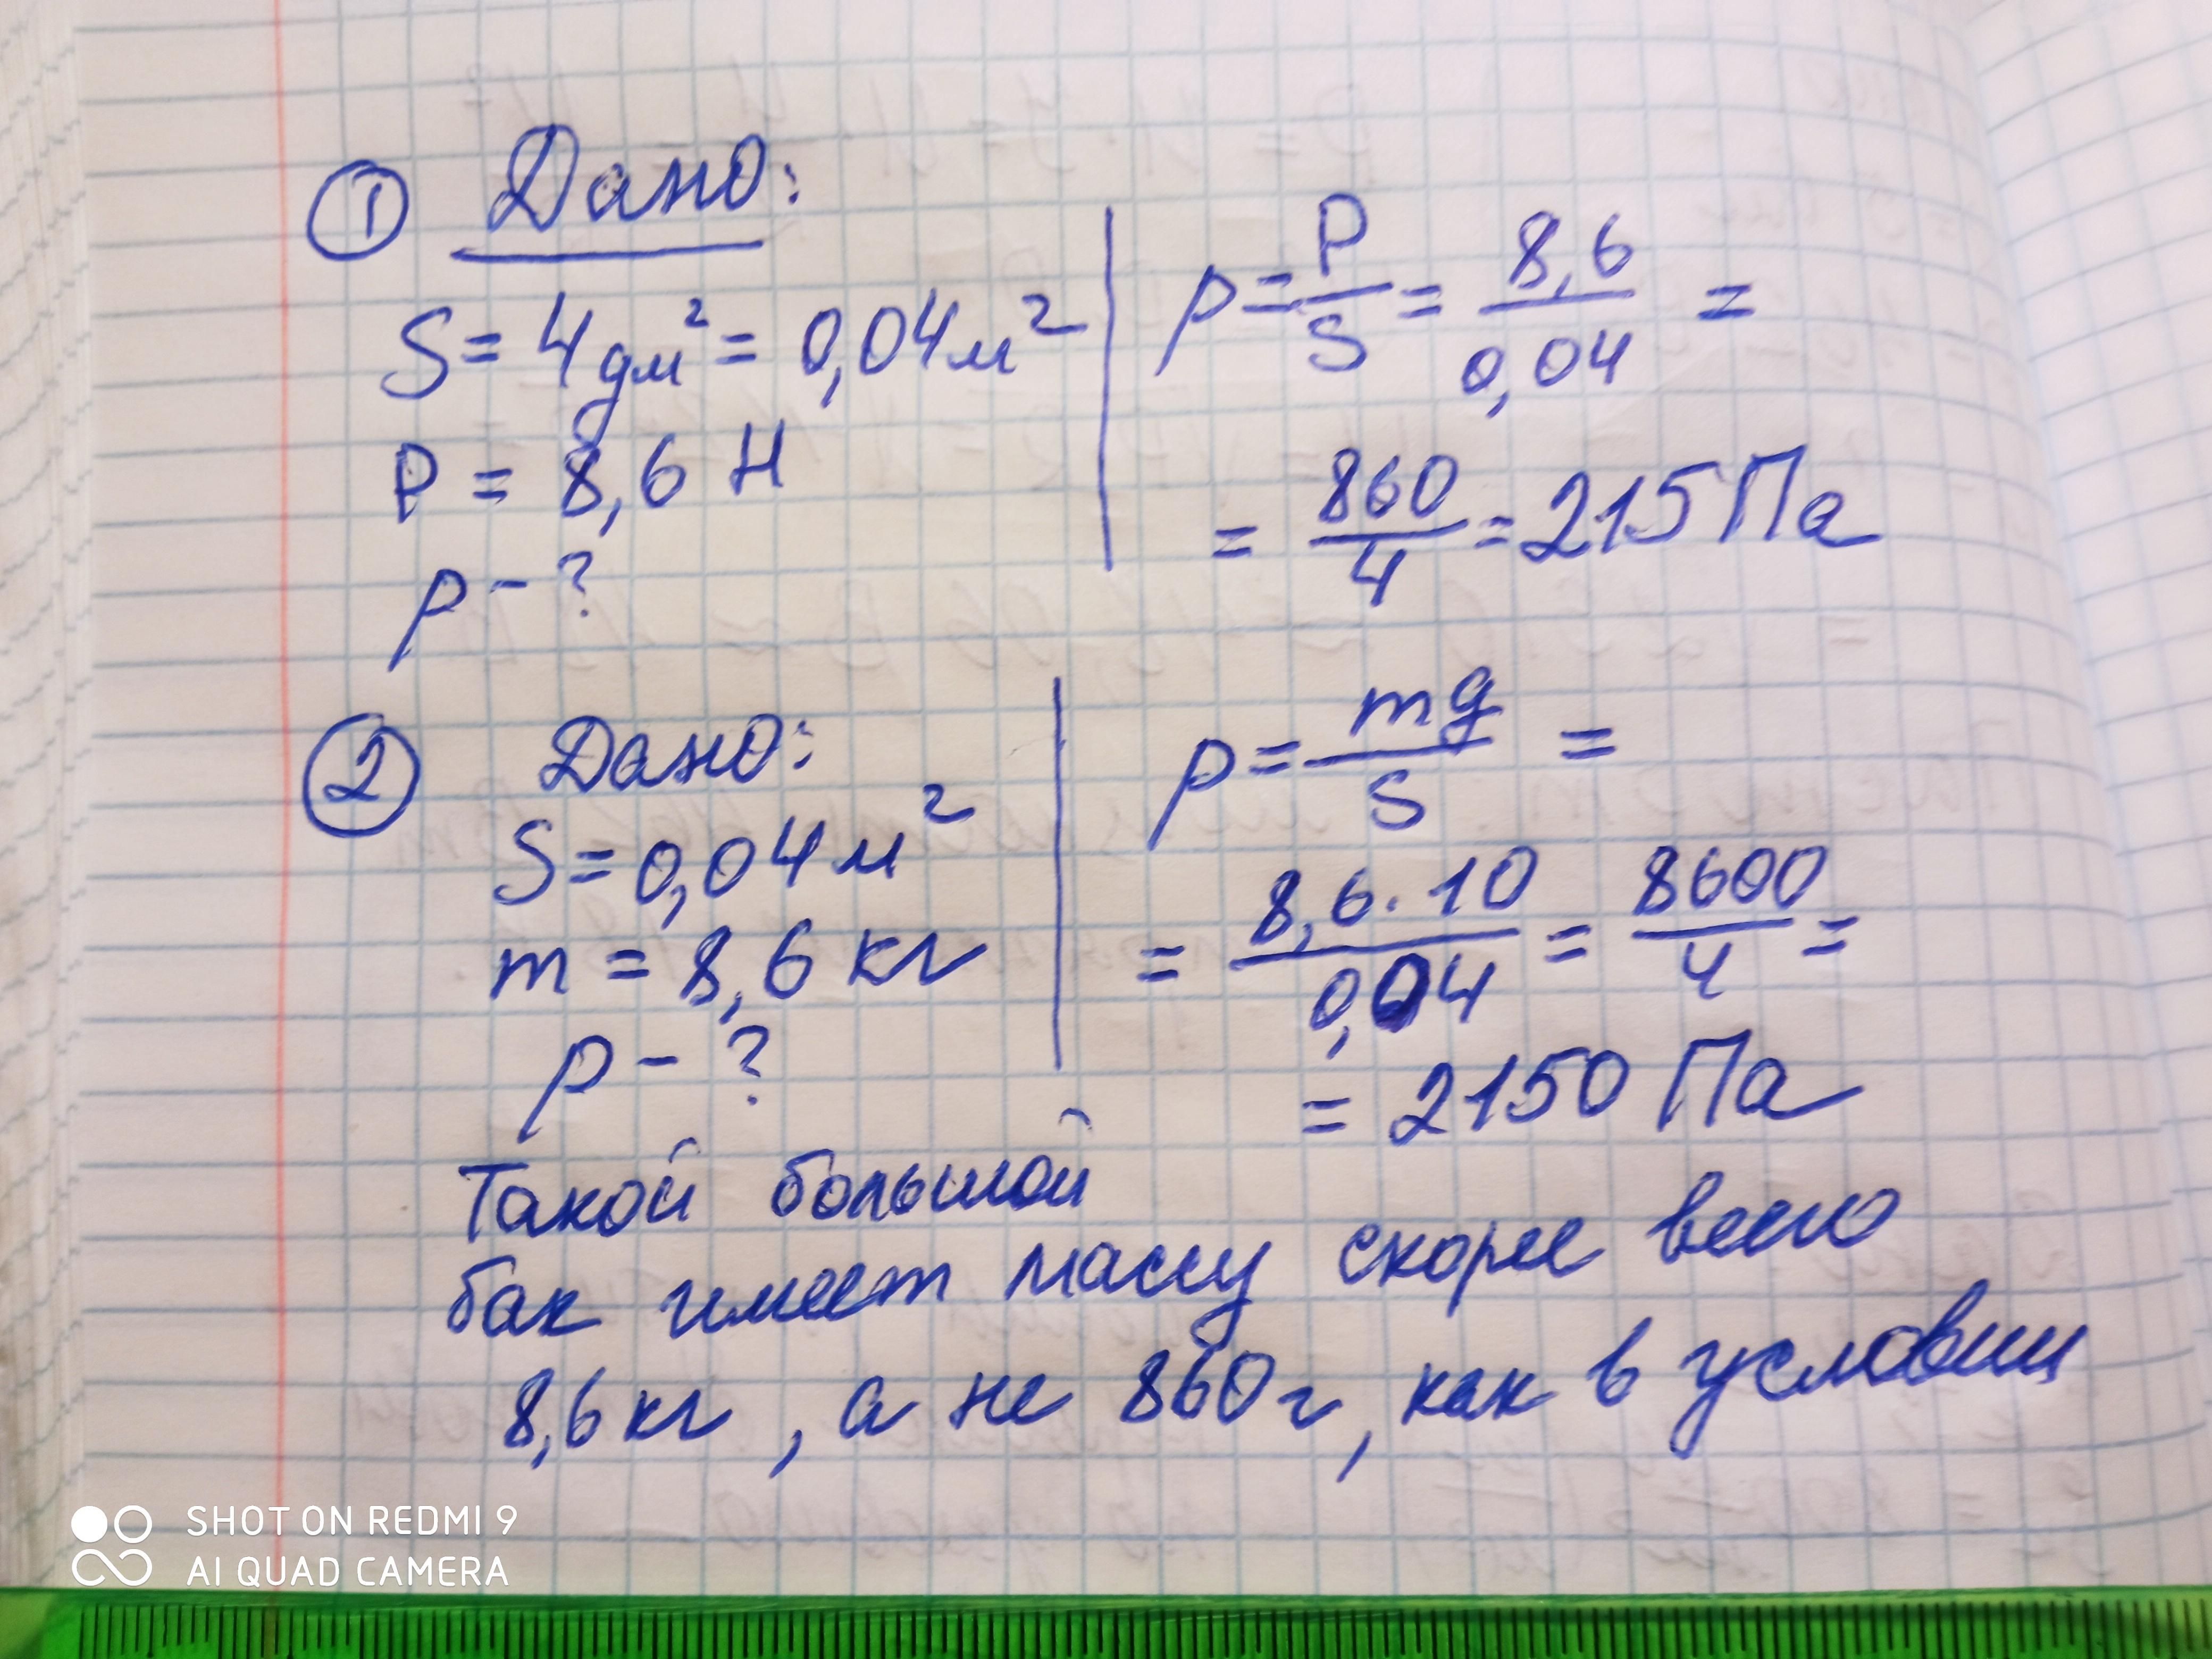 ① Дано:
S = 4 дм² = 0,04 м²
P = 8,6 Н
p - ?
p = P/S = 8,6/0,04 =
= 860/4 = 215 Па
② Дано:
S = 0,04 м²
m = 8,6 кг
p - ?
p = mg/S =
= 8,6·10/0,04 = 8600/4 =
= 2150 Па
Такой большой
бак имеет массу скорее всего
8,6 кг, а не 860 г, как в условии
SHOT ON REDMI 9
AI QUAD CAMERA